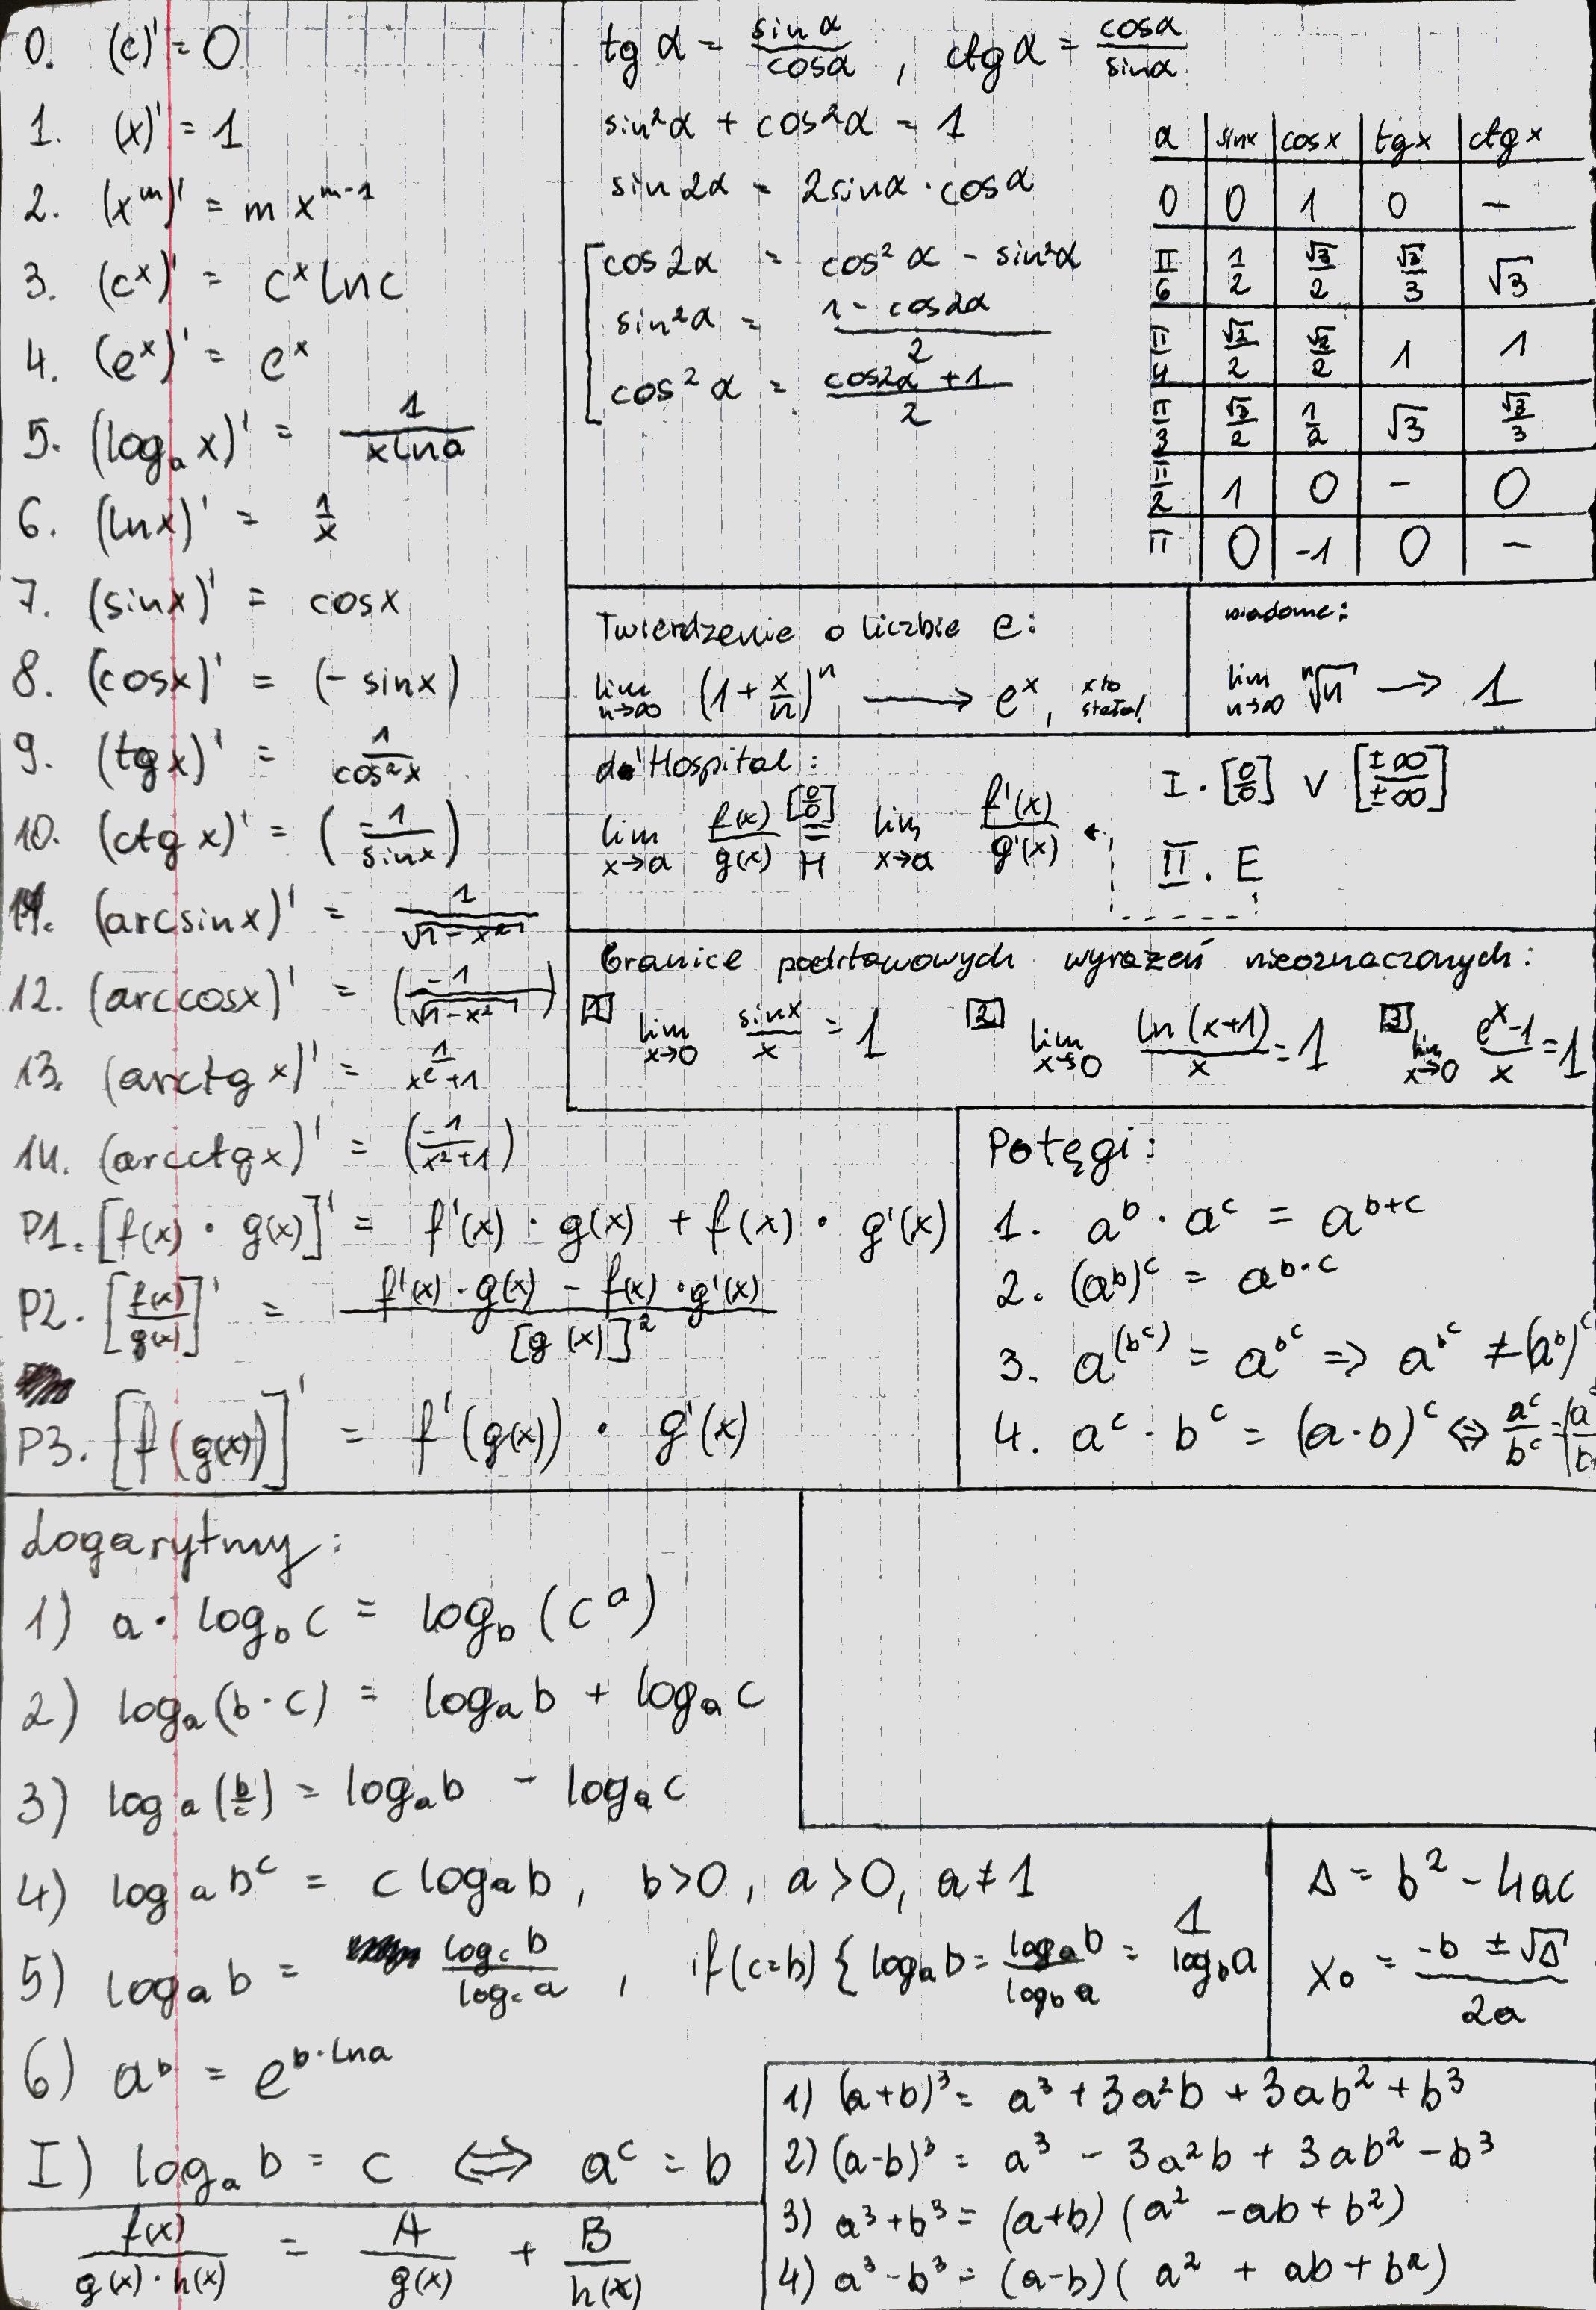 0. (c)' = 0
1. (x)' = 1
2. (x^m)' = m x^{m-1}
3. (c^x)' = c^x ln c
4. (e^x)' = e^x
5. (log_a x)' = 1/(x ln a)
6. (ln x)' = 1/x
7. (sin x)' = cos x
8. (cos x)' = (- sin x)
9. (tg x)' = 1/cos²x
10. (ctg x)' = (-1/sin x)
11. (arcsin x)' = 1/√(1-x²)
12. (arccos x)' = (-1/√(1-x²))
13. (arctg x)' = 1/(x²+1)
14. (arcctg x)' = (-1/(x²+1))
P1. [f(x) · g(x)]' = f'(x) · g(x) + f(x) · g'(x)
P2. [f(x)/g(x)]' = (f'(x) · g(x) - f(x) · g'(x))/[g(x)]²
P3. [f(g(x))]' = f'(g(x)) · g'(x)
tg α = sin α/cos α , ctg α = cos α/sin α
sin²α + cos²α = 1
sin 2α = 2sin α · cos α
cos 2α = cos² α - sin²α
sin²α = (1 - cos2α)/2
cos² α = (cos2α + 1)/2
α | sin x | cos x | tg x | ctg x
0 | 0 | 1 | 0 | -
π/6 | 1/2 | √3/2 | √3/3 | √3
π/4 | √2/2 | √2/2 | 1 | 1
π/3 | √3/2 | 1/2 | √3 | √3/3
π/2 | 1 | 0 | - | 0
π | 0 | -1 | 0 | -
Twierdzenie o liczbie e:
lim n→∞ (1 + x/n)^n → e^x, x to stała!
wiadome:
lim n→∞ ⁿ√n → 1
de'Hospital:
lim x→a f(x)/g(x) [0/0] =_H lim x→a f'(x)/g'(x)
I. [0/0] ∨ [±∞/±∞]
II. E
Granice podstawowych wyrażeń nieoznaczonych:
[1] lim x→0 sin x/x = 1 [2] lim x→0 ln(x+1)/x = 1 [3] lim x→0 (e^x-1)/x = 1
Potęgi:
1. a^b · a^c = a^{b+c}
2. (a^b)^c = a^{b·c}
3. a^(b^c) = a^{b^c} => a^{b^c} ≠ (a^b)^c
4. a^c · b^c = (a·b)^c ⇔ a^c/b^c = (a/b
Logarytmy:
1) a · log_b c = log_b (c^a)
2) log_a (b · c) = log_a b + log_a c
3) log_a (b/c) = log_a b - log_a c
4) log_a b^c = c log_a b, b>0, a>0, a≠1
5) log_a b = log_c b/log_c a , if(c=b) { log_a b = log_b b/log_b a = 1/log_b a
6) a^b = e^{b·ln a}
I) log_a b = c ⇔ a^c = b
Δ = b² - 4ac
x₀ = (-b ± √Δ)/2a
f(x)/(g(x)·h(x)) = A/g(x) + B/h(x)
1) (a+b)³ = a³ + 3a²b + 3ab² + b³
2) (a-b)³ = a³ - 3a²b + 3ab² - b³
3) a³+b³ = (a+b)(a² - ab + b²)
4) a³-b³ = (a-b)(a² + ab + b²)